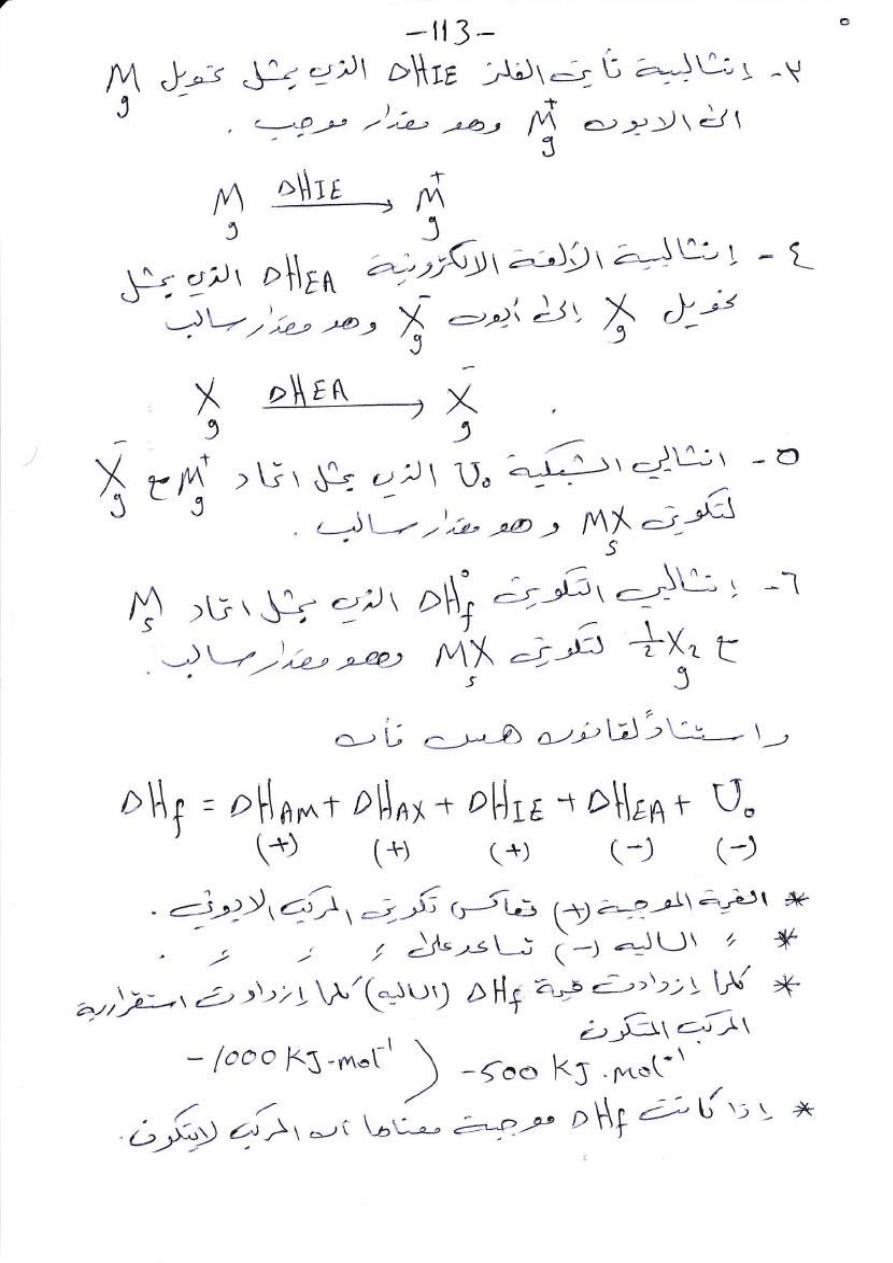 -113-
٣- إنثالبية تأين الفلز ΔHIE الذي يمثل تحويل Mg
الى الايون M⁺g وهو مقدار موجب .
Mg ΔHIE → M⁺g
٤- إنثالبية الألفة الالكترونية ΔHEA الذي يمثل
تحويل Xg إلى أيون X⁻g وهو مقدار سالب
Xg ΔHEA → X⁻g
٥- انثالبي الشبكية U₀ الذي يمثل اتحاد M⁺g مع X⁻g
لتكوين MXs وهو مقدار سالب .
٦- إنثالبي التكوين ΔH°f الذي يمثل اتحاد Ms
مع ½X₂g لتكوين MXs وهو مقدار سالب .
واستناداً لقانون هس فأن
ΔHf = ΔHAM + ΔHAX + ΔHIE + ΔHEA + U₀
(+) (+) (+) (-) (-)
* القيمة الموجبة (+) تعاكس تكوين المركب الايوني .
* 〃 السالبه (-) تساعد على 〃 〃 〃 .
* كلما إزدادت قيمة ΔHf (السالبه) كلما إزدادت استقرارية
المركب المتكون
-1000 KJ.mol⁻¹ ) -500 KJ.mol⁻¹
* إذا كانت ΔHf موجبة معناها أن المركب لايتكون .